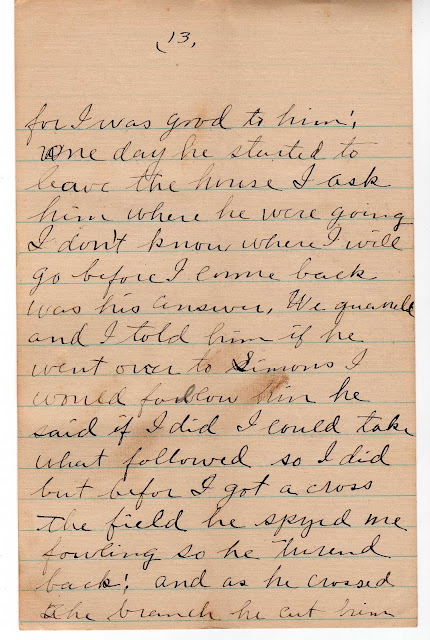 13,
for I was good to him;
one day he started to
leave the house I ask
him where he were going
I don't know where I will
go before I come back
was his answer, We quarrell
and I told him if he
went over to Simons I
would follow him he
said if I did I could take
what followed so I did
but befor I got a cross
the field he spyed me
fowling so he turend
back; and as he crossed
the branch he cut him